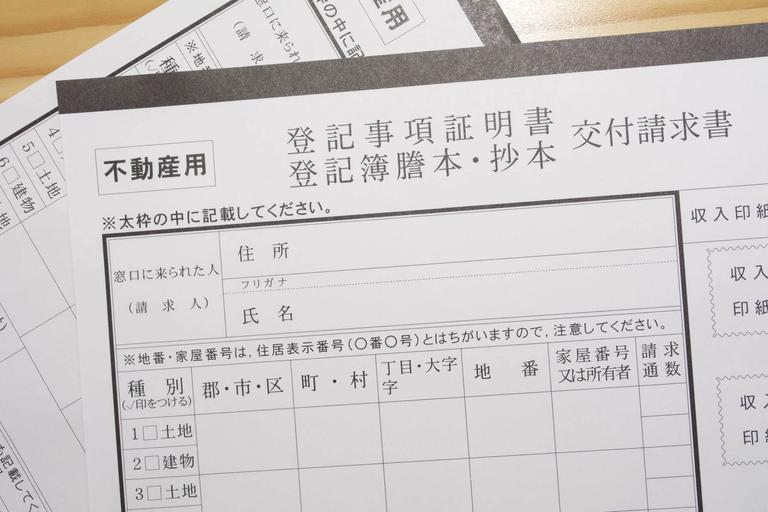 不動産用
登記事項証明書
登記簿謄本・抄本
交付請求書
※太枠の中に記載してください。
窓口に来られた人
(請求人)
住所
フリガナ
氏名
収入印紙
収入
印紙
収入
印紙
※地番・家屋番号は，住居表示番号(〇番〇号)とはちがいますので，注意してください。
種別
(✓印をつける)
郡・市・区
町・村
丁目・大字
字
地番
家屋番号
又は所有者
請求
通数
1□土地
2□建物
3□土地
産用
窓口に来られ
(請求
枠の中に記
※地
種
(✓
4□
5□土地
6□建物